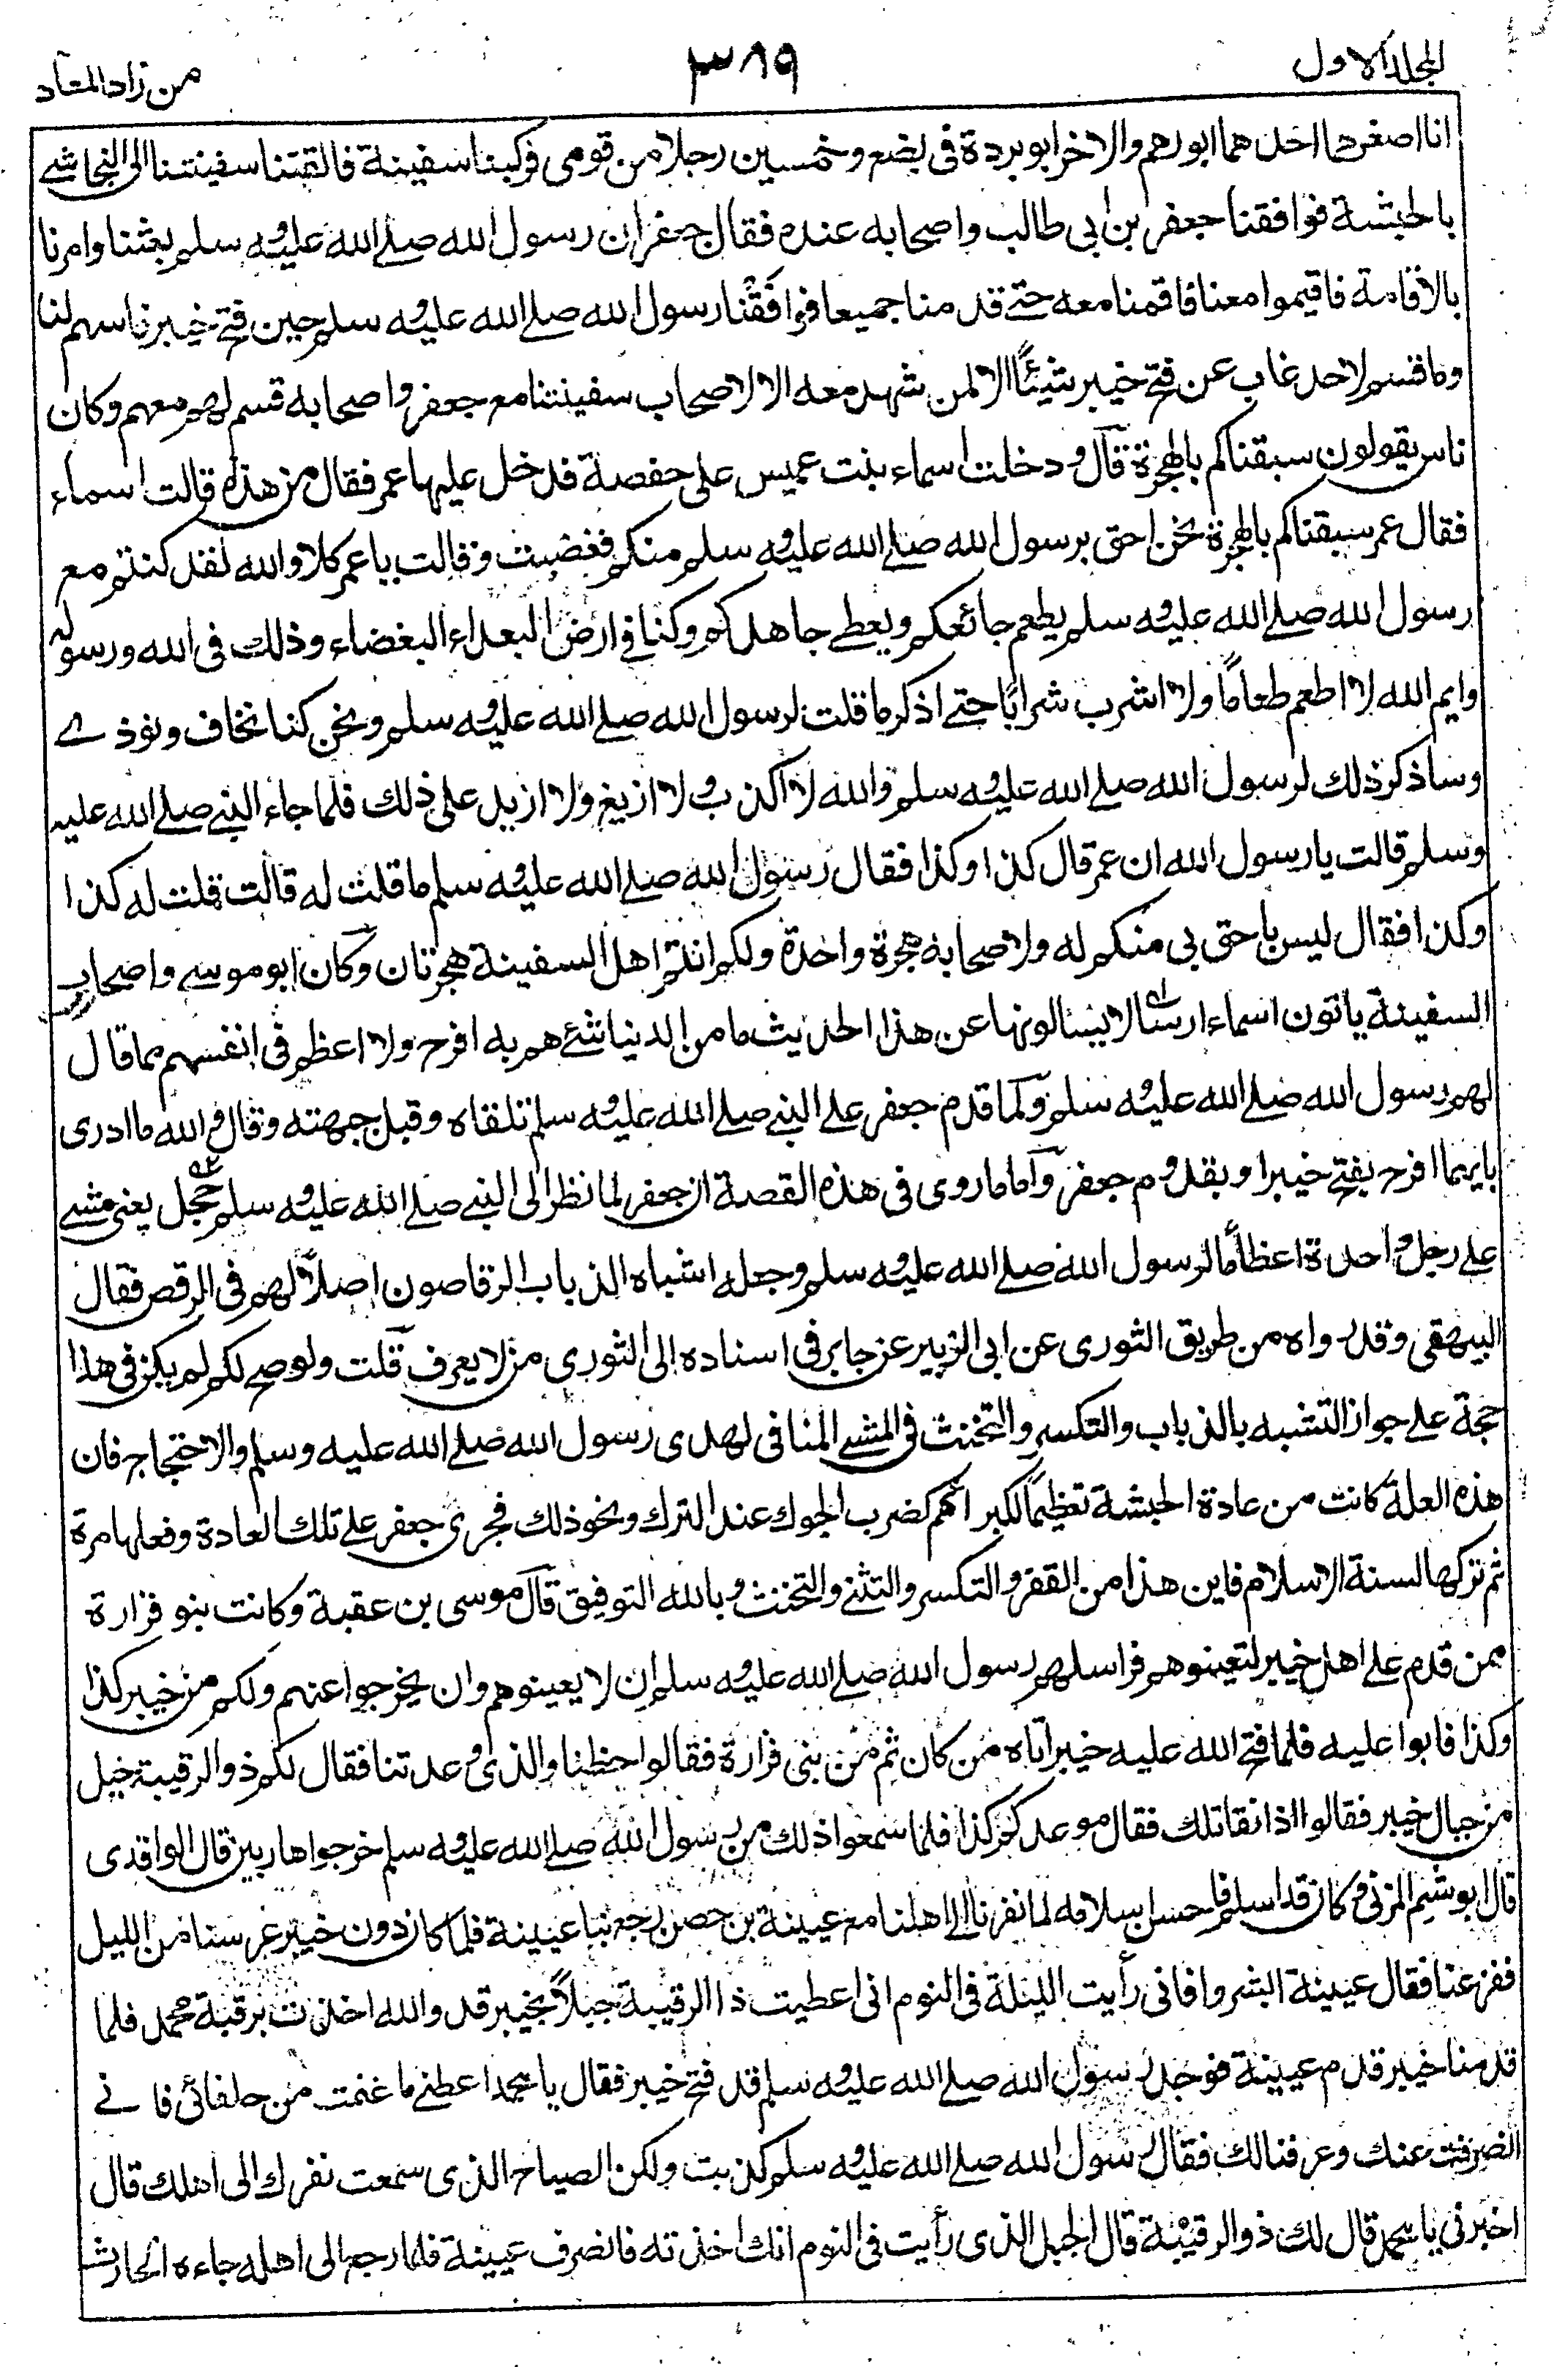 المجلد الاول
٣٨٩
من زاد المعاد
انا اصغرهما احدهما ابورهم والاخر ابو بردة فى بضع وخمسين رجلا من قومى فركبنا سفينة فالقتنا سفينتنا الى النجاشے
بالحبشة فوافقنا جعفر بن ابى طالب واصحابه عنده فقال جعفر ان رسول الله صلے الله عليه وسلم بعثنا وامرنا
بالاقامة فاقيموا معنا فاقمنا معه حتے قدمنا جميعا فوافَقْنا رسول الله صلے الله عليه وسلم حين فتح خيبر فاسهم لنا
وما قسم لاحد غاب عن فتح خيبر شيئًا الا لمن شهد معه الا لاصحاب سفينتنا مع جعفر واصحابه قسم لهم معهم وكان
ناس يقولون سبقناكم بالهجرة قال ودخلت اسماء بنت عميس على حفصة فدخل عليها عمر فقال من هذه قالت اسماء
فقال عمر سبقناكم بالهجرة نحن احق برسول الله صلے الله عليه وسلم منكم فغضبت وقالت ياعمر كلا والله لقد كنتم مع
رسول الله صلے الله عليه وسلم يطعم جائعكم ويعطے جاهلكم وكنا فى ارض البعداء البغضاء وذلك فى الله ورسوله
وايم الله لا اطعم طعامًا ولا اشرب شرابًا حتے اذكر ما قلت لرسول الله صلے الله عليه وسلم ونحن كنا نخاف ونوذے
وساذكر ذلك لرسول الله صلے الله عليه وسلم والله لا اكذب ولا ازيغ ولا ازيد على ذلك فلما جاء النبے صلے الله عليه
وسلم قالت يارسول الله ان عمر قال كذا وكذا فقال رسول الله صلے الله عليه وسلم ما قلت له قالت قلت له كذا
وكذا فقال ليس باحق بى منكم له ولاصحابه هجرة واحدة ولكم انتم اهل السفينة هجرتان وكان ابو موسے واصحاب
السفينة ياتون اسماء ارسالا يسالونها عن هذا الحديث ما من الدنيا شئ هم به افرح ولا اعظم فى انفسهم مما قال
لهم رسول الله صلے الله عليه وسلم ولما قدم جعفر علے النبے صلے الله عليه وسلم تلقاه وقبل جبهته وقال والله ما ادرى
بايهما افرح بفتح خيبر او بقدوم جعفر واما ما روى فى هذه القصة ان جعفر لما نظر الى النبے صلے الله عليه وسلم حجل يعنى مشے
علے رجل واحدة اعظامًا لرسول الله صلے الله عليه وسلم وجعله اشباه الذباب الرقاصون اصلًا لهم فى الرقص فقال
البيهقى وقد رواه من طريق الثورى عن ابى الزبير عن جابر فى اسناده الى الثورى من لا يعرف قلت ولو صح لكم لم يكن فى هذا
حجة علے جواز التشبه بالذباب والتكسر والتخنث فى المشے المنافى لهدى رسول الله صلے الله عليه وسلم والاحتجاج فان
هذه العلة كانت من عادة الحبشة تعظيمًا لكبرائهم كضرب الجوك عند الترك ونحو ذلك فجرى جعفر علے تلك العادة وفعلها مرة
ثم تركها لسنة الاسلام فاين هذا من القفز والتكسر والتثنے والتخنث وبالله التوفيق قال موسى بن عقبة وكانت بنو فزارة
ممن قدم علے اهل خيبر لتعينوهم فراسلهم رسول الله صلے الله عليه وسلم ان لا يعينوهم وان يخرجوا عنهم ولكم من خيبر كذا
وكذا فابوا عليه فلما فتح الله عليه خيبر اتاه من كان ثم من بنى فزارة فقالوا حظنا والذى وعدتنا فقال لكم ذو الرقيبة جبل
من جبال خيبر فقالوا اذا نقاتلك فقال موعدكم كذا فلما سمعوا ذلك من رسول الله صلے الله عليه وسلم خرجوا هاربين قال الواقدى
قال ابو شيم المزنى وكان قد اسلم فاحسن اسلامه لما نفرنا الى اهلنا مع عيينة بن حصن رجع بنا عيينة فلما كان دون خيبر عرسنا من الليل
ففزعنا فقال عيينة ابشروا فانى رأيت الليلة فى النوم انى اعطيت ذا الرقيبة جبلًا بخيبر قد والله اخذت برقبة محمد فلما
قدمنا خيبر قدم عيينة فوجد رسول الله صلے الله عليه وسلم قد فتح خيبر فقال يا محمد اعطنے ما غنمت من حلفائى فانے
انصرفت عنك وعرفنالك فقال رسول الله صلے الله عليه وسلم كذبت ولكن الصياح الذى سمعت نفرك الى اهلك قال
اخبرنى يا محمد قال لك ذو الرقيبة قال الجبل الذى رأيت فى النوم انك اخذته فانصرف عيينة فلما رجع الى اهله جاءه الحارث